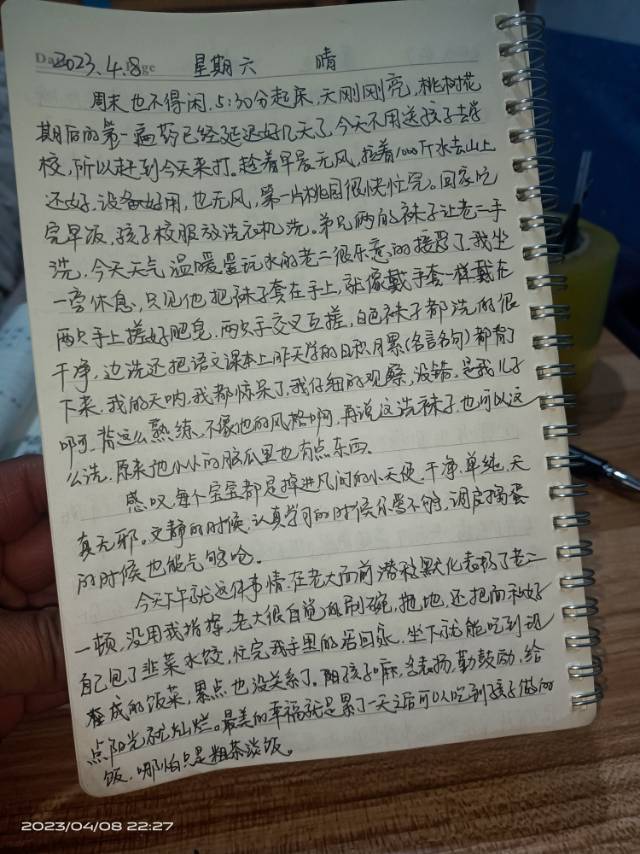 Da 2023.4.8 ge 星期六 晴
周末也不得闲,5:30分起床,天刚刚亮,桃树花
期后的第一遍药已经延迟好几天了,今天不用送孩子去学
校,所以赶到今天来打。趁着早晨无风,拉着1000斤水去山上
还好,设备好用,也无风,第一片桃园很快忙完。回家吃
完早饭,孩子校服放洗衣机洗。弟兄俩的袜子让老二手
洗,今天天气温暖,爱玩水的老二很乐意的接受了,我坐
一旁休息,只见他把袜子套在手上,就像戴手套一样戴在
两只手上搓好肥皂,两只手交叉互搓,白色袜子都洗的很
干净,边洗还把语文课本上昨天学的日积月累(名言名句)都背了
下来,我的天呐,我都惊呆了,我仔细的观察,没错,是我儿子
啊,背这么熟练,不像他的风格啊,再说这洗袜子,也可以这
么洗,原来他小小的脑瓜里也有点东西。
感叹,每个宝宝都是掉进凡间的小天使,干净,单纯,天
真无邪。文静的时候,认真学习的时候,你爱不够,调皮捣蛋
的时候也能气够呛。
今天下午就这件事情,在老大面前潜移默化表扬了老二
一顿,没用我指挥,老大很自觉的刷碗,拖地,还把面和好
自己包了韭菜水饺,忙完我手里的活回家,坐下就能吃到现
成的饭菜,累点也没关系了。阳孩子嘛,多表扬,勤鼓励,给
点阳光就灿烂。最美的幸福就是累了一天之后可以吃到孩子做的
饭,哪怕只是粗茶淡饭。
2023/04/08 22:27